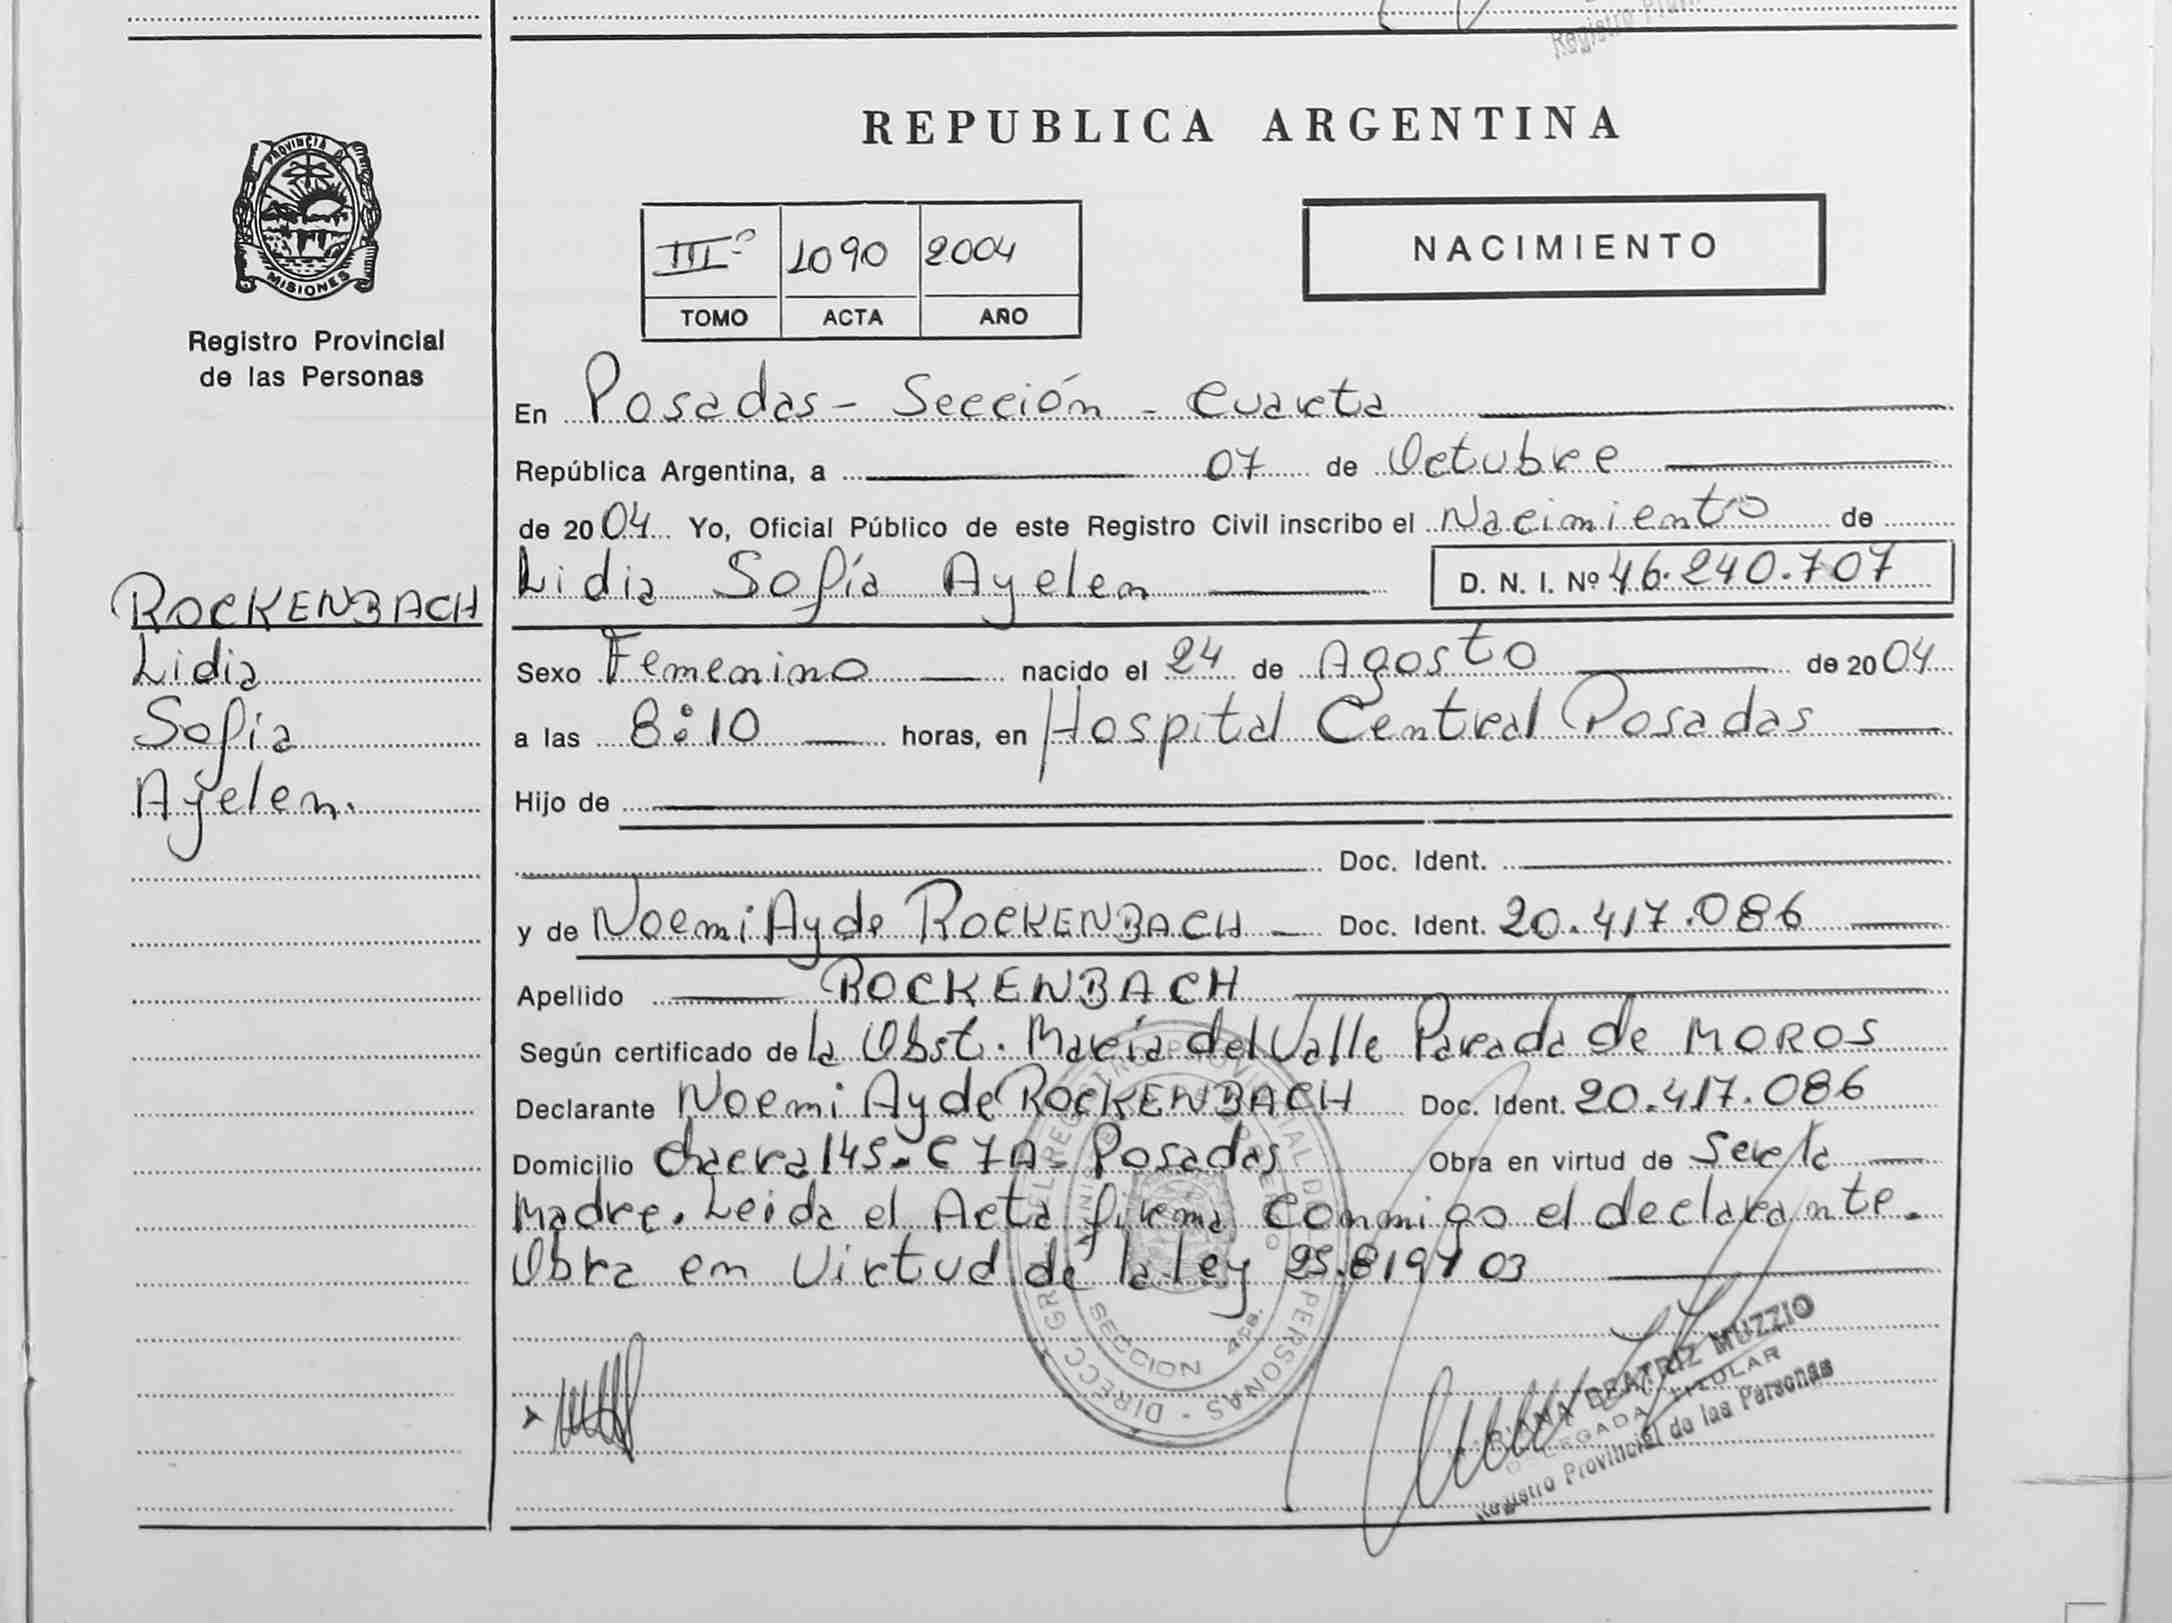 REPUBLICA ARGENTINA
PROVINCIA D
MISIONES
Registro Provincial
de las Personas
IIIº 1090 2004
TOMO ACTA AÑO
NACIMIENTO
En Posadas - Sección - Cuarta
República Argentina, a 07 de Octubre
de 2004 Yo, Oficial Público de este Registro Civil inscribo el Nacimiento de
Lidia Sofía Ayelen D. N. I. Nº 46.240.707
ROCKENBACH
Lidia
Sofia
Ayelen.
Sexo Femenino nacido el 24 de Agosto de 2004
a las 8:10 horas, en Hospital Central Posadas
Hijo de
Doc. Ident.
y de Noemi Ayde ROCKENBACH Doc. Ident. 20.417.086
Apellido ROCKENBACH
Según certificado de la Obst. María del Valle Parada de MOROS
Declarante Noemi Ayde ROCKENBACH Doc. Ident. 20.417.086
Domicilio chacra 145 - C 7A - Posadas Obra en virtud de Ser la
Madre. Leida el Acta firma conmigo el declarante.
Obra en Virtud de la ley 25.819/03
SECCION 4ta.
BEATRIZ MUZZIO
DELEGADA TITULAR
Registro Provincial de las Personas